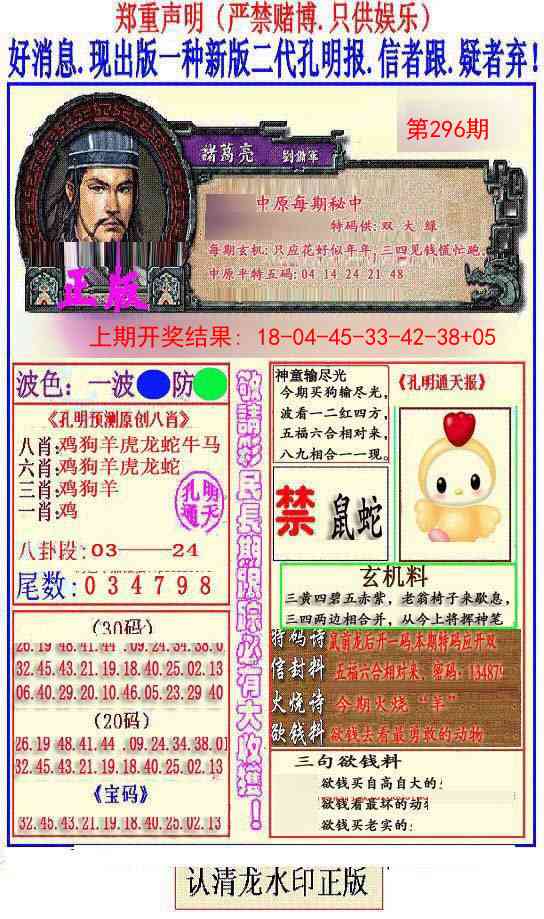 郑重声明（严禁赌博.只供娱乐）
好消息.现出版一种新版二代孔明报.信者跟.疑者弃!
第296期
諸葛亮
劉備軍
中原每期秘中
特码供:双 大 綠
每期玄机:只应花好似年年,三四见钱慌忙跑.
中原平特五码:04 14 24 21 48
正版
上期开奖结果: 18-04-45-33-42-38+05
波色: 一波 防
《孔明预测原创八肖》
八肖:鸡狗羊虎龙蛇牛马
六肖:鸡狗羊虎龙蛇
三肖:鸡狗羊
一肖:鸡
孔明
通天
八卦段:03——24
尾数:034798
敬請彩民長期跟踪必有大收獲!
神童输尽光
今期买狗输尽光,
波看一二红四方,
五福六合相对来,
八九相合一一现。
《孔明通天报》
禁
鼠蛇
玄机料
三黄四碧五赤紫，老翁椅子来歇息，
三四两边相合并，从今上将挥神笔
(30码)
26.19 48.41.44 .09.24.34.38.01
32.45.43.21.19.18.40.25.02.13
06.40.29.20.10.46.05.23.29 40
(20码)
26.19 48.41.44 .09.24.34.38.01
32.45.43.21.19.18.40.25.02.13
《宝码》
32.45.43.21.19.18.40.25.02.13
特码诗 鼠前龙后开一码,本期特码应开双
信封料 五福六合相对来、密码：134879
火烧诗 今期火烧“羊”
欲钱料 欲钱去看最勇敢的动物
三句欲钱料
欲钱买自高自大的:
欲钱看最坏的动物
欲钱买老实的:
认清龙水印正版